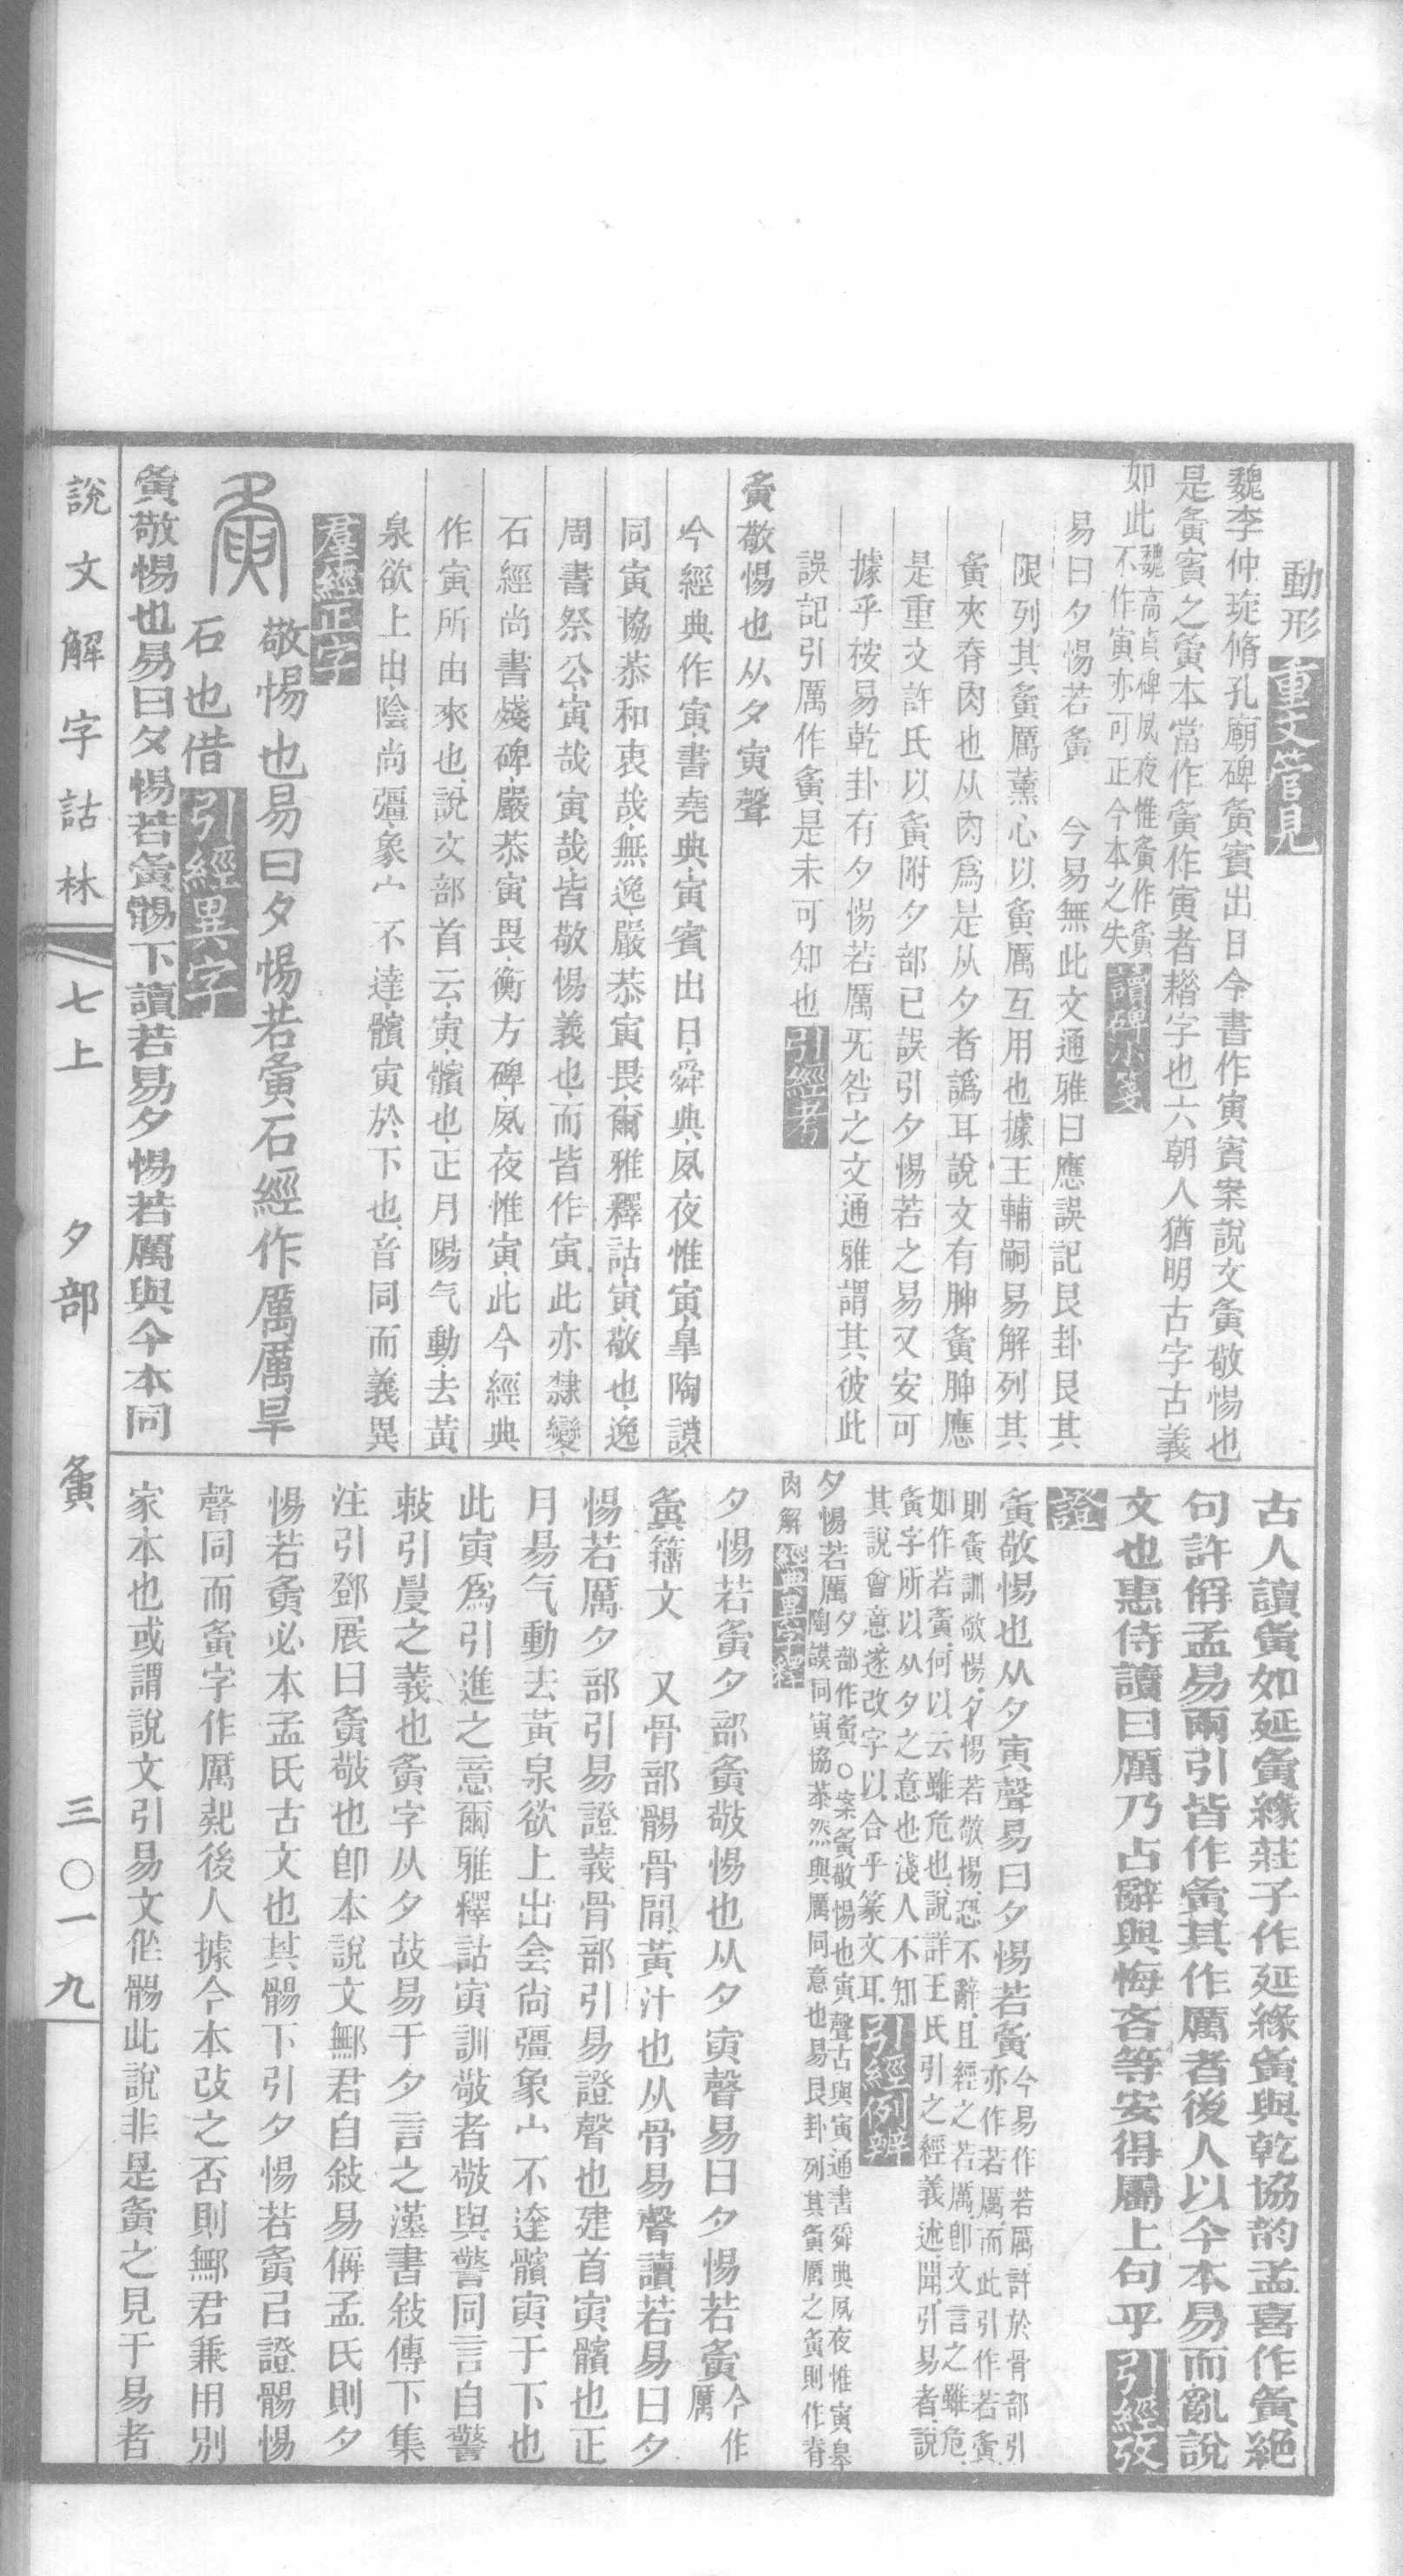 動形重文管見
魏李仲璇脩孔廟碑夤賓出日今書作寅賓案說文夤敬惕也
是夤賓之夤本當作夤作寅者藉字也六朝人猶明古字古義
如此魏高貞碑夙夜惟夤作夤
不作寅亦可正今本之失讀碑小箋
易曰夕惕若夤　今易無此文通雅曰應誤記艮卦艮其
限列其夤厲薰心以夤厲互用也據王輔嗣易解列其
夤夾脊肉也从肉爲是从夕者譌耳說文有胂夤胂應
是重文許氏以夤附夕部已誤引夕惕若之易又安可
據乎按易乾卦有夕惕若厲无咎之文通雅謂其彼此
誤記引厲作夤是未可知也引經考
夤敬惕也从夕寅聲
今經典作寅書堯典寅賓出日舜典夙夜惟寅皐陶謨
同寅協恭和衷哉無逸嚴恭寅畏爾雅釋詁寅敬也逸
周書祭公寅哉寅哉皆敬惕義也而皆作寅此亦隸變
石經尚書殘碑嚴恭寅畏衡方碑夙夜惟寅此今經典
作寅所由來也說文部首云寅髕也正月陽气動去黃
泉欲上出陰尚彊象宀不達髕寅於下也音同而義異
羣經正字
夤敬惕也易曰夕惕若夤石經作厲厲旱
石也借引經異字
夤敬惕也易曰夕惕若夤䯜下讀若易夕惕若厲與今本同
古人讀夤如延夤緣莊子作延緣夤與乾協韵孟喜作夤絕
句許偁孟易兩引皆作夤其作厲者後人以今本易而亂說
文也惠侍讀曰厲乃占辭與悔吝等安得屬上句乎引經攷
證
夤敬惕也从夕寅聲易曰夕惕若夤今易作若厲許於骨部引
亦作若厲而此引作若夤
則夤訓敬惕夕惕若敬惕恐不辭且經之若厲卽文言之雖危
如作若夤何以云雖危也說詳王氏引之經義述聞引易者說
夤字所以从夕之意也淺人不知
其說會意遂改字以合乎篆文耳引經例辨
夕惕若厲夕部作夤○案夤敬惕也寅聲古與寅通書舜典夙夜惟寅皐
陶謨同寅協恭然與厲同意也易艮卦列其夤厲之夤則作脊
肉解經典異字釋
夕惕若夤夕部夤敬惕也从夕寅聲易曰夕惕若夤今作
厲
夤籒文　又骨部䯜骨閒黃汁也从骨易聲讀若易曰夕
惕若厲夕部引易證義骨部引易證聲也建首寅髕也正
月昜气動去黃泉欲上出侌尙彊象宀不達髕寅于下也
此寅爲引進之意爾雅釋詁寅訓敬者敬與警同言自警
敕引晨之義也夤字从夕故易于夕言之漢書敍傳下集
注引鄧展曰夤敬也卽本說文鄦君自敍易偁孟氏則夕
惕若夤必本孟氏古文也其䯜下引夕惕若夤吕證䯜惕
聲同而夤字作厲㱠後人據今本改之否則鄦君兼用別
家本也或謂說文引易文作䯜此說非是夤之見于易者
說文解字詁林　七上　夕部　夤　三〇一九